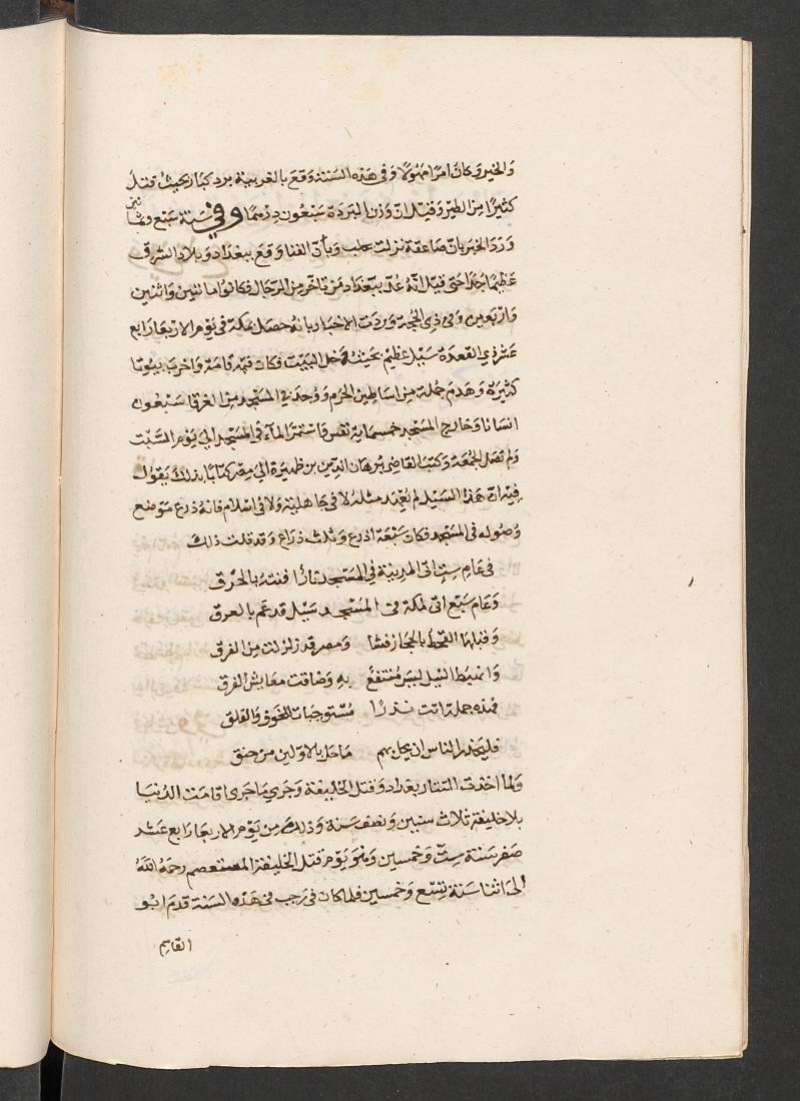 والخير وكان امرًا مهولًا وفي هذه السنة وقع بالغربية برد كبار بحيث قتل
كثيرًا من الطير وقيل ان وزن البردة سبعون درهما وفي سنة سبع وثمانين
ورد الخبر بان صاعقة نزلت بحلب وبأن الفنا وقع ببغداد وبلاد الشرق
عظيمًا جدا حتى قيل انه عدّ ببغداد من تاخر من الرجال فكانوا مائتين واثنين
واربعين وفي ذي الحجة وردت الاخبار بانه حصل بمكة في يوم الاربعا رابع
عشر ذي القعدة سيل عظيم بحيث دخل البيت فكان فيه قامة واخرب بيوتا
كثيرة وهدم جملة من اساطين الحرم ووجد في المسجد من الغرقا سبعون
انسانا وخارج المسجد خمسماية نفس فاستمر المآء في المسجد الي يوم السبت
ولم تصل الجمعة وكتب القاضي برهان الدين بن ظهيرة الي مصر كتابًا بذلك يقول
فيه ان هذا السيل لم يعهد مثله لا في جاهلية ولا في اسلام فانه ذرع موضع
وصوله في المسجد فكان سبعة اذرع وثلث ذراع وقد قلت ذلك
في عام ست اتى المدينة في المسجد نارًا فنته بالحرق
وعام سبع اتى لمكة في المسجد سيل قد عم بالغرق
وقبلها القحط بالحجاز فشا ومصر قد زلزلت من الفرق
وانهبط النيل ليس منتفع به وضاقت معايش الفرق
فهذه جملة اتت نذرا مستوجبات للخوف والقلق
فليحذر الناس ان يحل بهم ما حل بالاولين من حنق
ولما اخذت التتار بغداد وقتل الخليفة وجري ما جرى اقامت الدنيا
بلا خليفة ثلاث سنين ونصف سنة وذلك من يوم الاربعا رابع عشر
صفر سنة ست وخمسين وهو يوم قتل الخليفة المستعصم رحمه الله
الى اثنا سنة تسع وخمسين فلما كان في رجب في هذه السنة قدم ابو
القاسم